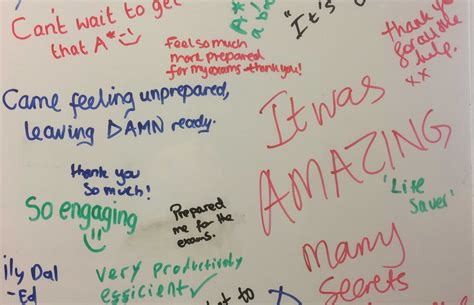 Can't wait to get
that A*
A*
"It's
thank you
for all the
help.
xx
Feel so much
more prepared
for my exams - thank you!
Came feeling unprepared,
leaving DAMN ready.
It was
AMAZING
thank you
so much!
So engaging
Prepared
me for the
exams.
'Life
Saver'
Many
Secrets
ily Dal
- Ed
very productively
efficient ✓
what to